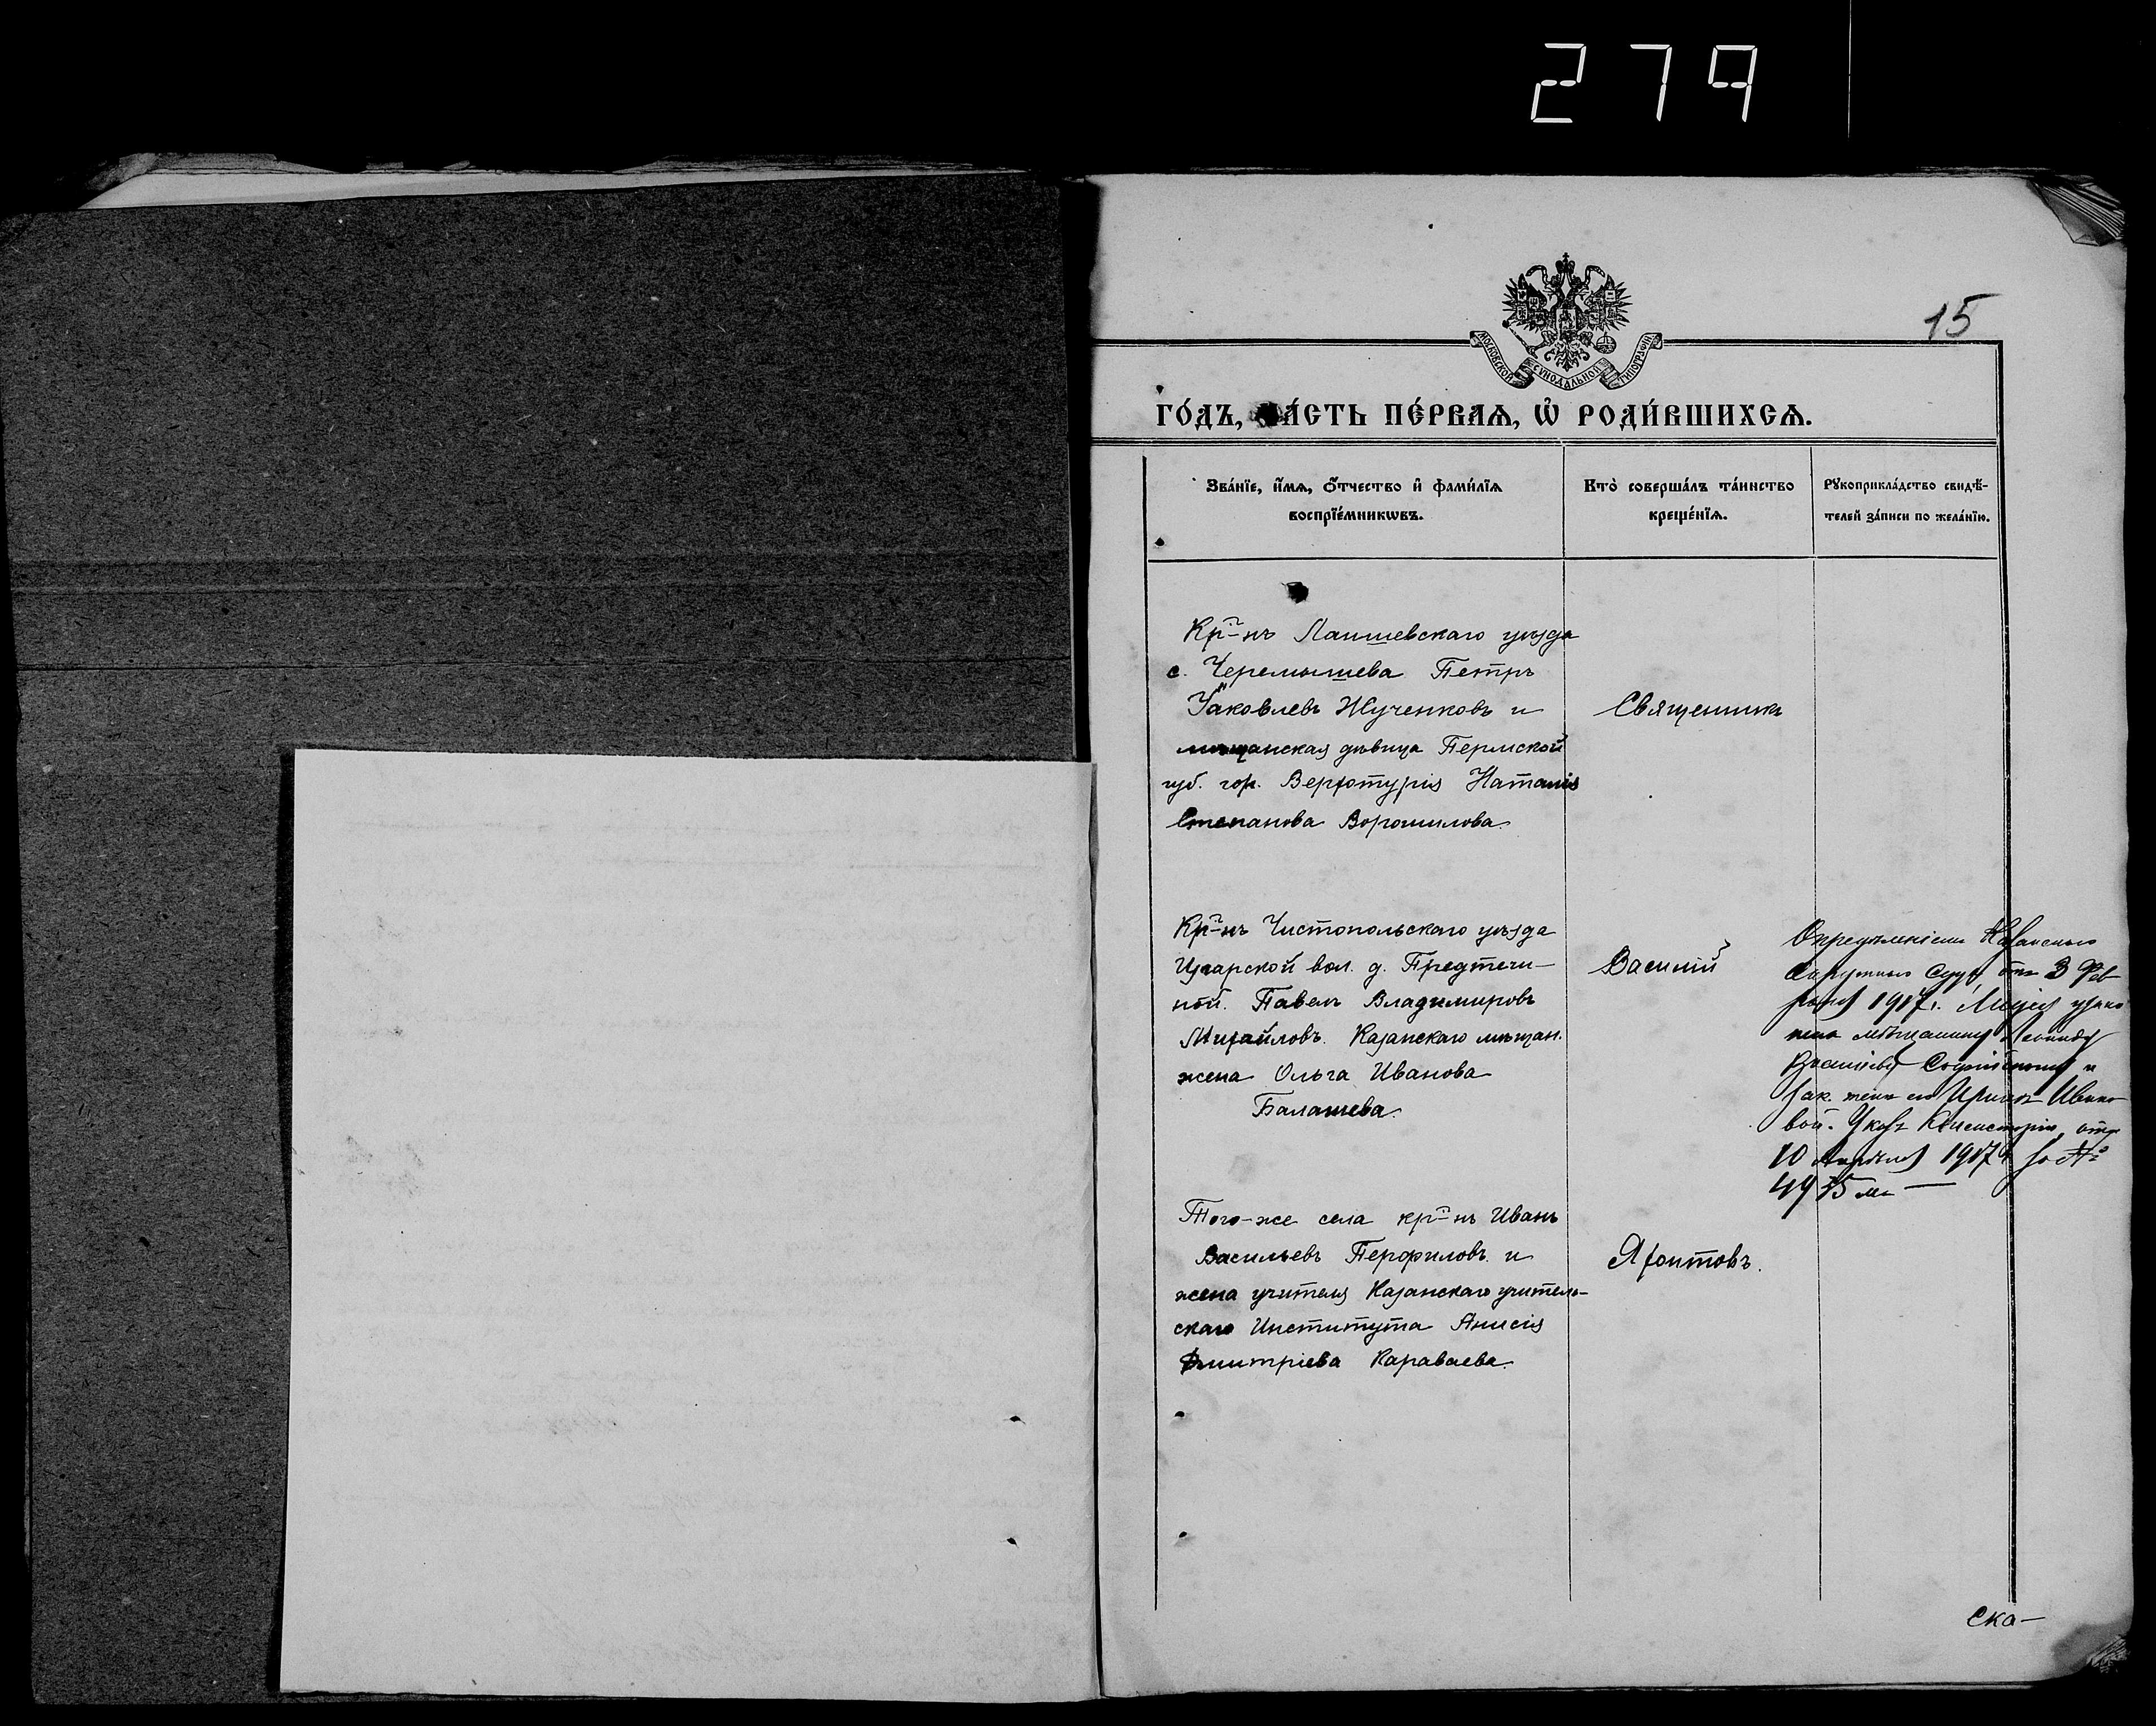 279
15
МОСКОВСКОЙ СѴНОДАЛЬНОЙ ТИПОГРАФІИ
ГО́ДЪ, ЧА́СТЬ ПЕ́РВАѦ, Ѡ҆ РОДИ́ВШИХСѦ.
Зва́нїе, и҆́мѧ, ѻ҆́тчество и҆ фами́лїѧ
воспрїе́мникѡвъ.
Кто̀ соверша́лъ та́инство
креще́нїѧ.
Рꙋкоприкла́дство свидѣ́-
телей за́писи по жела́нїю.
Кр-нъ Лаишевскаго уѣзда
с. Черемышева Петръ
Яковлевъ Жученковъ и
мѣщанская дѣвица Пермской
губ. гор. Верхотурія Наталія
Степанова Ворошилова.
Священникъ
Кр-нъ Чистопольскаго уѣзда
вол. д. Предтечи-
ной. Павелъ Владимировъ
Михайловъ. Казанскаго мѣщан.
жена Ольга Иванова
Балашева.
Василій
Опредѣленіемъ Казанскаго
Окружнаго Суда отъ 3 Фев-
раля 1917 г. узако
нена мѣщанину Леониду
и
зак. женѣ его Иринѣ Ивано
вой. Указъ Консисторіи отъ
10 Апрѣля 1917 г. за №
4435
Того-же села кр-нъ Иванъ
Васильевъ Перфиловъ и
жена учителя Казанскаго учитель-
скаго Института Анисія
Дмитріева Караваева.
Яхонтовъ.
Ска-